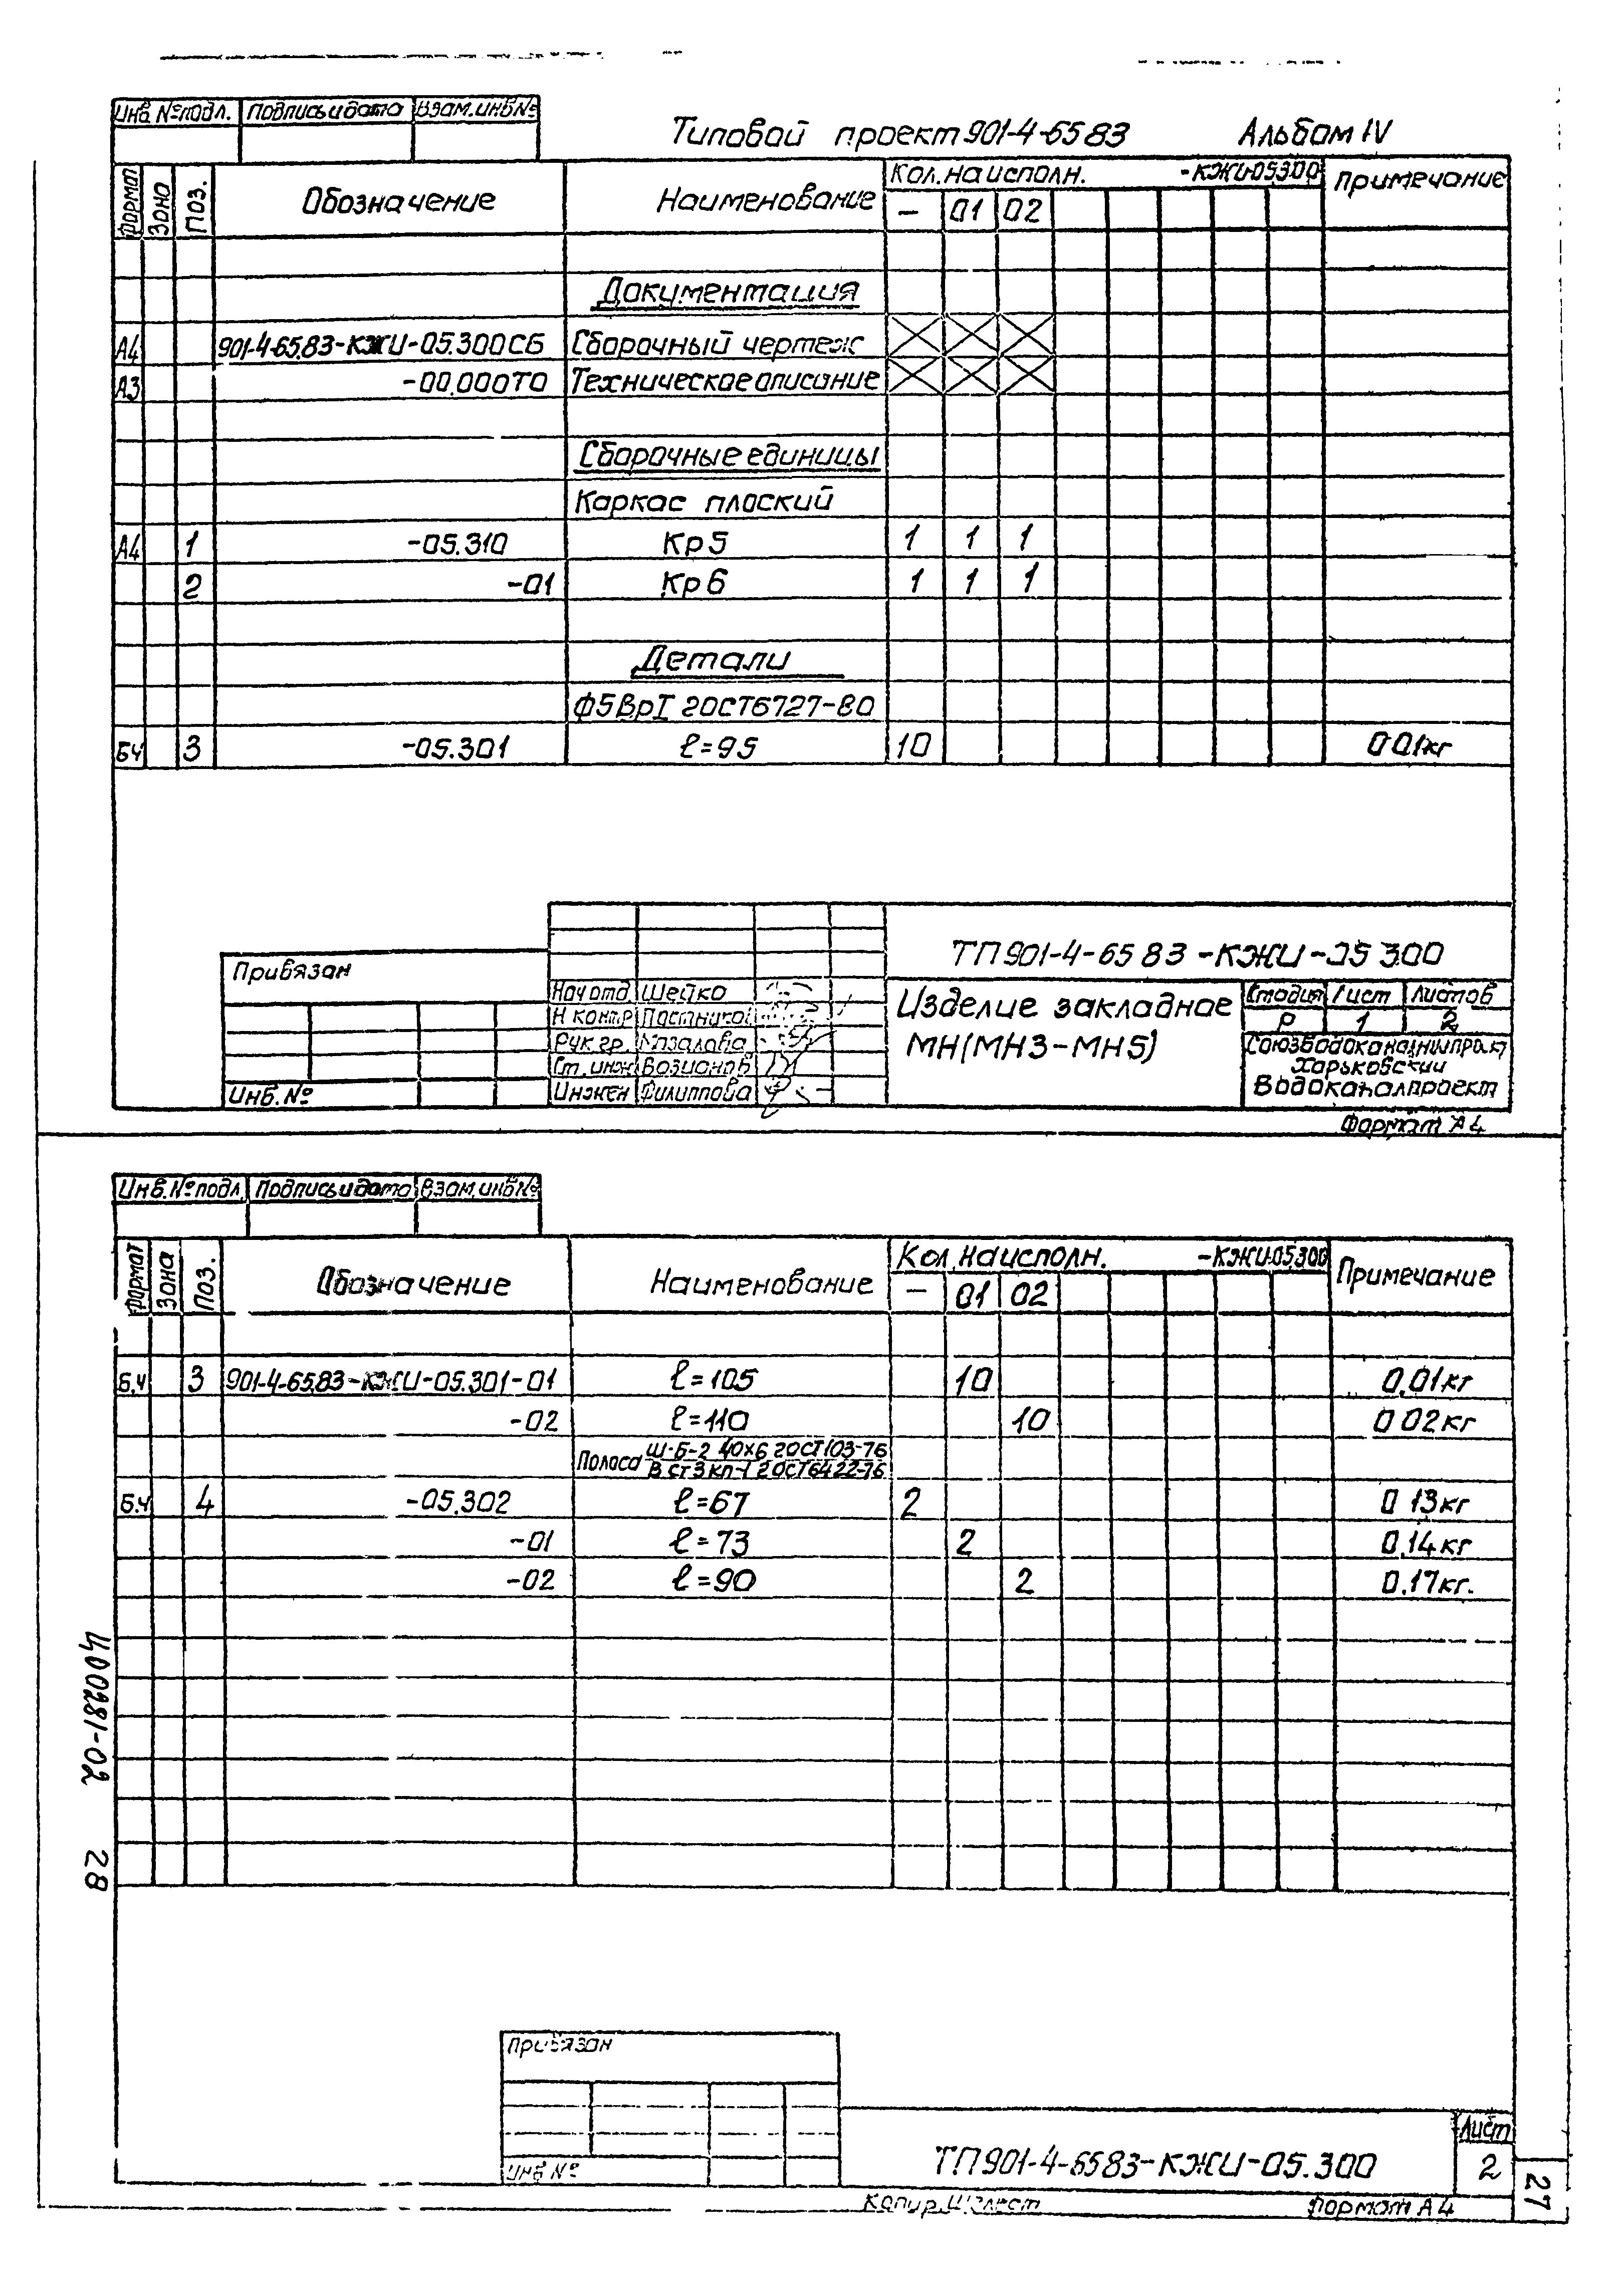 Инв. №подл. Подпись и дата Взам.инв№
Типовой проект 901-4-65 83 Альбом IV
Формат Зона Поз. Обозначение Наименование Кол. на исполн. -КЖИ-05300 Примечание
— 01 02
Документация
А4 901-4-65.83-КЖИ-05.300СБ Сборочный чертеж
А3 -00.000ТО Техническое описание
Сборочные единицы
Каркас плоский
А4 1 -05.310 Кр5 1 1 1
2 -01 Кр6 1 1 1
Детали
Ф5ВрI ГОСТ6727-80
БЧ 3 -05.301 ℓ=95 10 0 01кг
Привязан
Инв.№
Нач отд. Шейко
Н контр
Рук.гр.
Ст. инж Возианов
Инжен Филиппова
ТП 901-4-65 83-КЖИ-05 300
Изделие закладное
МН(МН3-МН5)
Стадия Лист Листов
Р 1 2
Союзводоканалниипроект
Харьковский
Водоканалпроект
Формат А4
Инв.№подл. Подпись и дата Взам.инв№
Формат Зона Поз. Обозначение Наименование Кол. на исполн. -КЖИ-05.300 Примечание
— 01 02
Б.Ч 3 901-4-65.83-КЖИ-05.301-01 ℓ=105 10 0.01кг
-02 ℓ=110 10 0 02кг
Полоса Ш-Б-2 40х6 ГОСТ103-76
В ст3кп-1 ГОСТ6422-76
Б.Ч 4 -05.302 ℓ=67 2 0 13кг
-01 ℓ=73 2 0.14кг
-02 ℓ=90 2 0.17кг.
Ц00281-02 28
Привязан
Инв №
ТП 901-4-65 83-КЖИ-05.300
Лист
2
Копир.
Формат А4
27